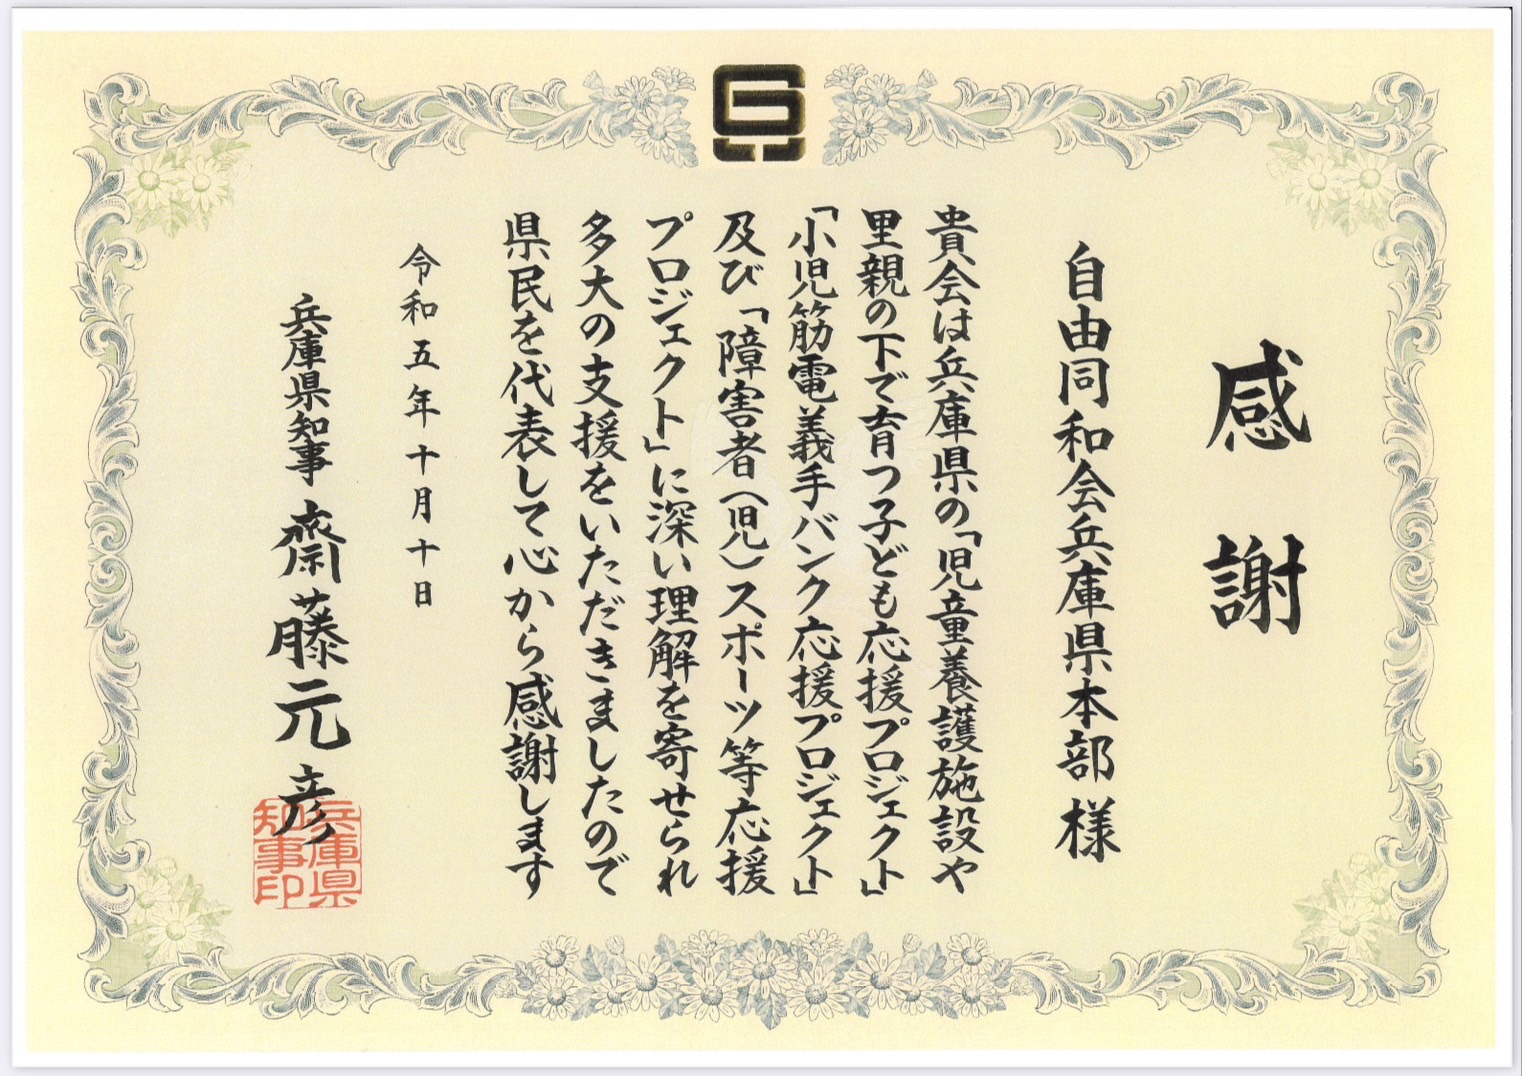 感謝
自由同和会兵庫県本部様
貴会は兵庫県の「児童養護施設や
里親の下で育つ子ども応援プロジェクト」
「小児筋電義手バンク応援プロジェクト」
及び「障害者(児)スポーツ等応援
プロジェクト」に深い理解を寄せられ
多大の支援をいただきましたので
県民を代表して心から感謝します
令和五年十月十日
兵庫県知事 齋藤元彦
兵庫県
知事印